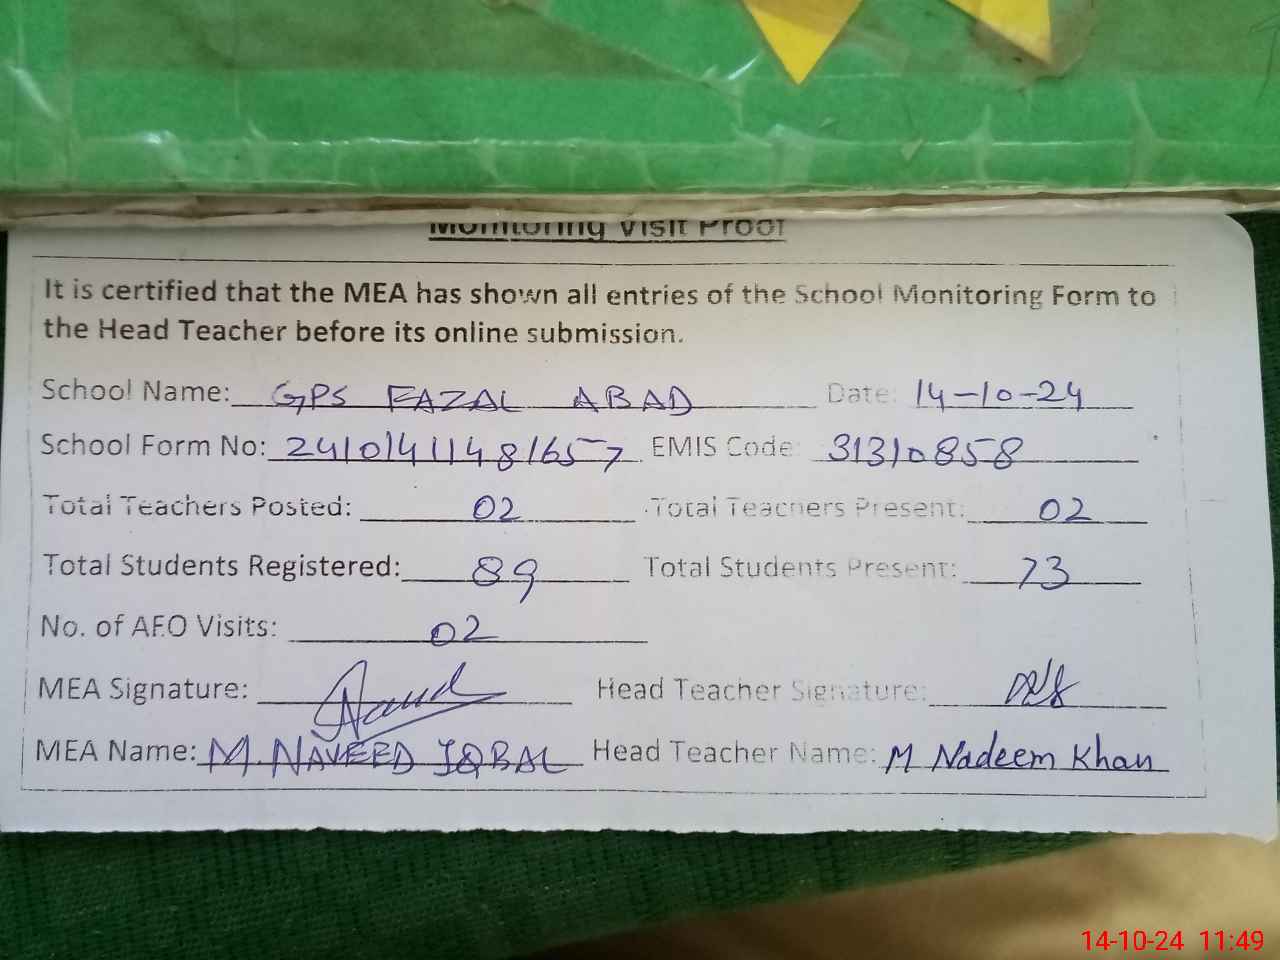 Monitoring Visit Proof
It is certified that the MEA has shown all entries of the School Monitoring Form to
the Head Teacher before its online submission.
School Name: GPS FAZAL ABAD Date: 14-10-24
School Form No: 24101411481657 EMIS Code: 31310858
Total Teachers Posted: 02 Total Teachers Present: 02
Total Students Registered: 89 Total Students Present: 73
No. of AEO Visits: 02
MEA Signature: Head Teacher Signature:
MEA Name: M. NAVEED IQBAL Head Teacher Name: M Nadeem Khan
14-10-24 11:49